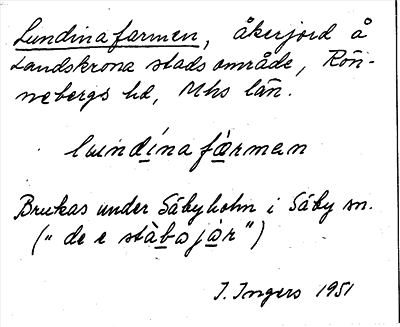 Lundinafarmen, åkerjord å
Landskrona stads område, Rön-
nebergs hd, Mhs län.
lundínafàrmen
Brukas under Säbyholm i Säby sn.
(" de e stàbojàr")
I. Ingers 1951